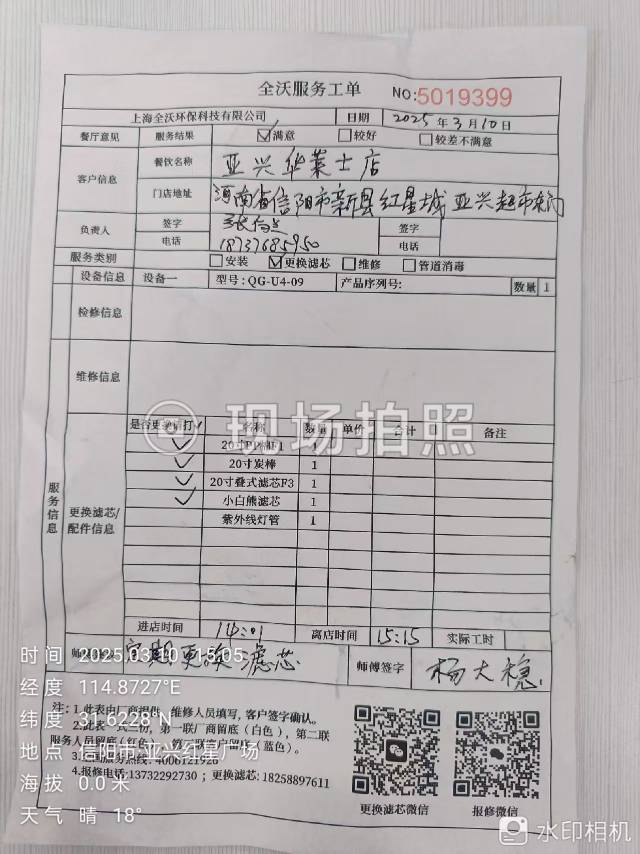 全沃服务工单 NO:5019399
上海全沃环保科技有限公司 日期 2025年3月10日
餐厅意见 服务结果 ☑满意 □较好 □较差不满意
客户信息 餐饮名称 亚兴华莱士店
门店地址 河南省信阳市新县红星城亚兴超市东门
负责人 签字 签字
电话 18737685950 电话
服务类别 □安装 ☑更换滤芯 □维修 □管道消毒
设备信息 设备一 型号:QG-U4-09 产品序列号: 数量 1
检修信息
维修信息
现场拍照
服务信息
更换滤芯/配件信息
是否更换请打✓ 名称 数量 单价 合计 备注
✓ 20寸PP棉F1 1
✓ 20寸炭棒 1
✓ 20寸叠式滤芯F3 1
✓ 小白熊滤芯 1
紫外线灯管 1
进店时间 14:01 离店时间 15:15 实际工时
定期更换滤芯 师傅签字 杨大穗
注:1.此表由厂商提供，维修人员填写，客户签字确认。
2.此表一式三份，第一联厂商留底（白色），第二联
服务人员留底（红色），第三联客户留底（蓝色）。
4.报修电话:13732292730 ; 更换滤芯:18258897611
更换滤芯微信 报修微信
时间 2025.03.10 15:05
经度 114.8727°E
纬度 31.6228°N
地点 信阳市·亚兴红星广场
海拔 0.0米
天气 晴 18°
水印相机